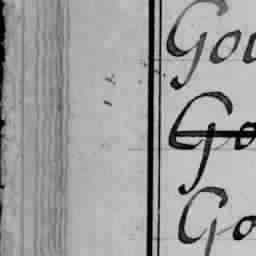 Gou
Go
Go